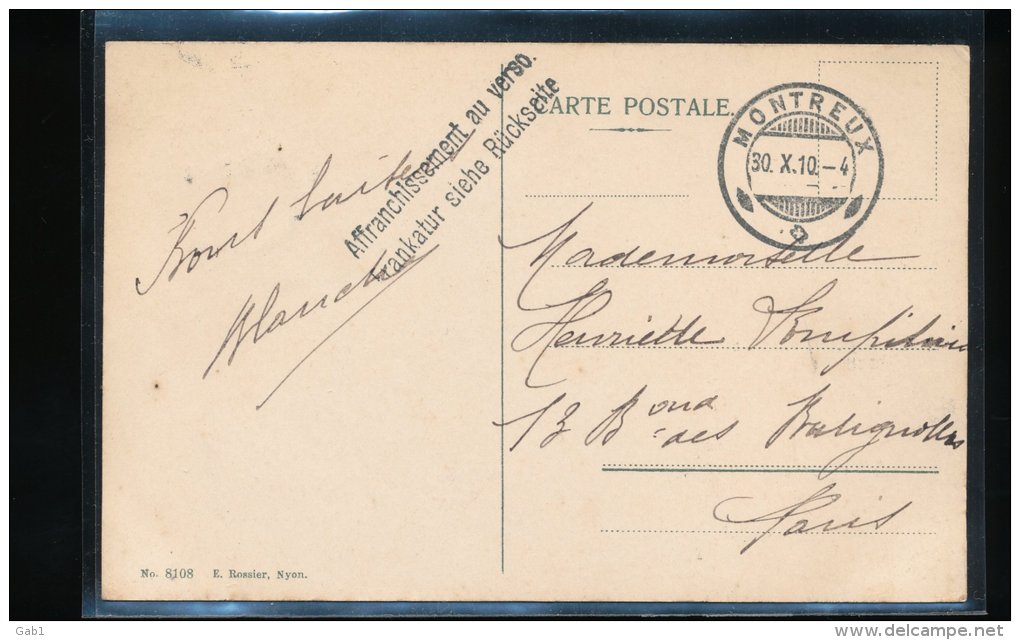 Affranchissement au verso.
Frankatur siehe Rückseite
CARTE POSTALE.
MONTREUX
30. X. 10. – 4
Mademoiselle
Henriette
13 Bond des Batignolles
Paris
No. 8108 E. Rossier, Nyon.
Gab1
www.delcampe.net